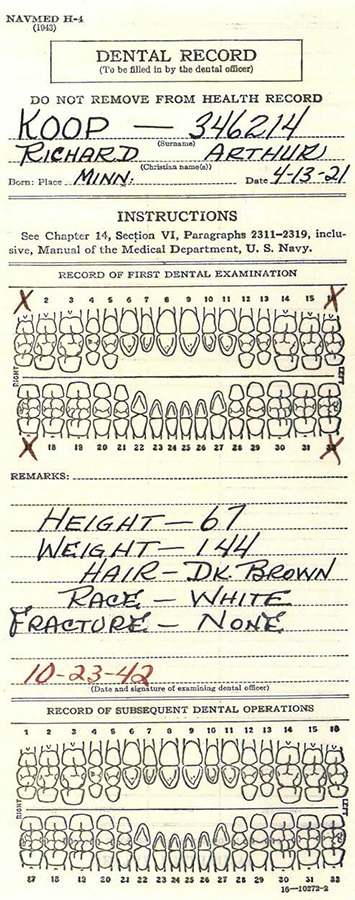 NAVMED H-4
(1943)
DENTAL RECORD
(To be filled in by the dental officer)
DO NOT REMOVE FROM HEALTH RECORD
KOOP — 346214
(Surname)
RICHARD ARTHUR
(Christian name(s))
Born: Place MINN. Date 4-13-21
INSTRUCTIONS
See Chapter 14, Section VI, Paragraphs 2311–2319, inclu-
sive, Manual of the Medical Department, U. S. Navy.
RECORD OF FIRST DENTAL EXAMINATION
X 2 3 4 5 6 7 8 9 10 11 12 13 14 15 X
RIGHT LEFT
X 18 19 20 21 22 23 24 25 26 27 28 29 30 31 X
REMARKS:
HEIGHT — 67
WEIGHT — 144
HAIR — DK BROWN
RACE — WHITE
FRACTURE — NONE
10-23-42
(Date and signature of examining dental officer)
RECORD OF SUBSEQUENT DENTAL OPERATIONS
1 2 3 4 5 6 7 8 9 10 11 12 13 14 15 16
RIGHT LEFT
17 18 19 20 21 22 23 24 25 26 27 28 29 30 31 32
16—10272-2